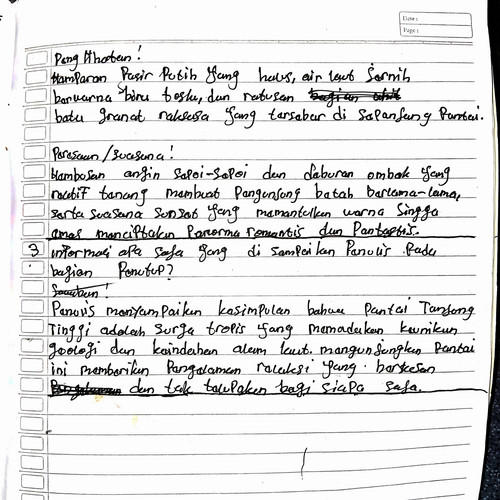 Date :
Page :
Penglihatan !
Hamparan Pasir Putih Yang halus, air laut Jernih
berwarna biru toska, dan ratusan
batu granat raksasa yang tersebar di sepanjang Pantai.
Perasaan / suasana !
Hembosan angin sepoi-sepoi dan deburan ombak yang
relatif tenang membuat Pengunjung betah berlama-lama,
serta suasana sunset yang memantulkan warna Jingga
emas menciptakan Panorma romantis dan Pantastis.
3 informasi apa saja yang di sampaikan Penulis Pada
bagian Penutup?
Jawaban !
Penulis menyampaikan kesimpulan bahwa Pantai Tanjung
Tinggi adalah surga tropis yang memadukan keunikan
geologi dan keindahan alam laut. mengunjungkan Pantai
ini memberikan Pengalaman relaksasi yang berkesan
dan tak terlupakan bagi siapa saja.